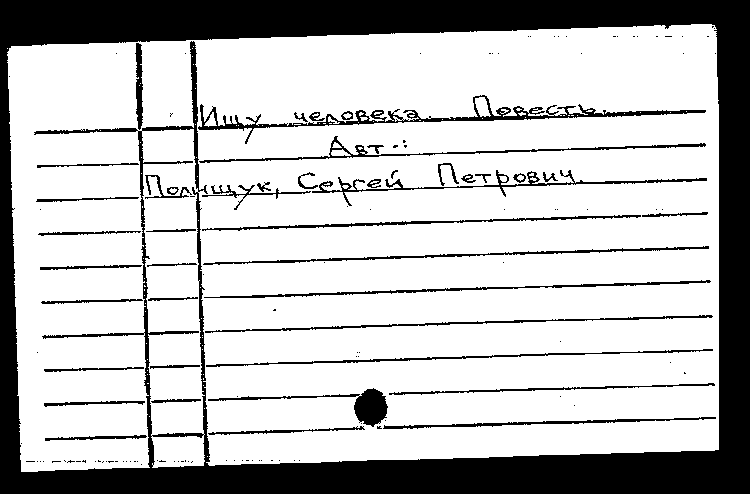 Ищу человека. Повесть.
Авт.:
Полищук, Сергей Петрович.